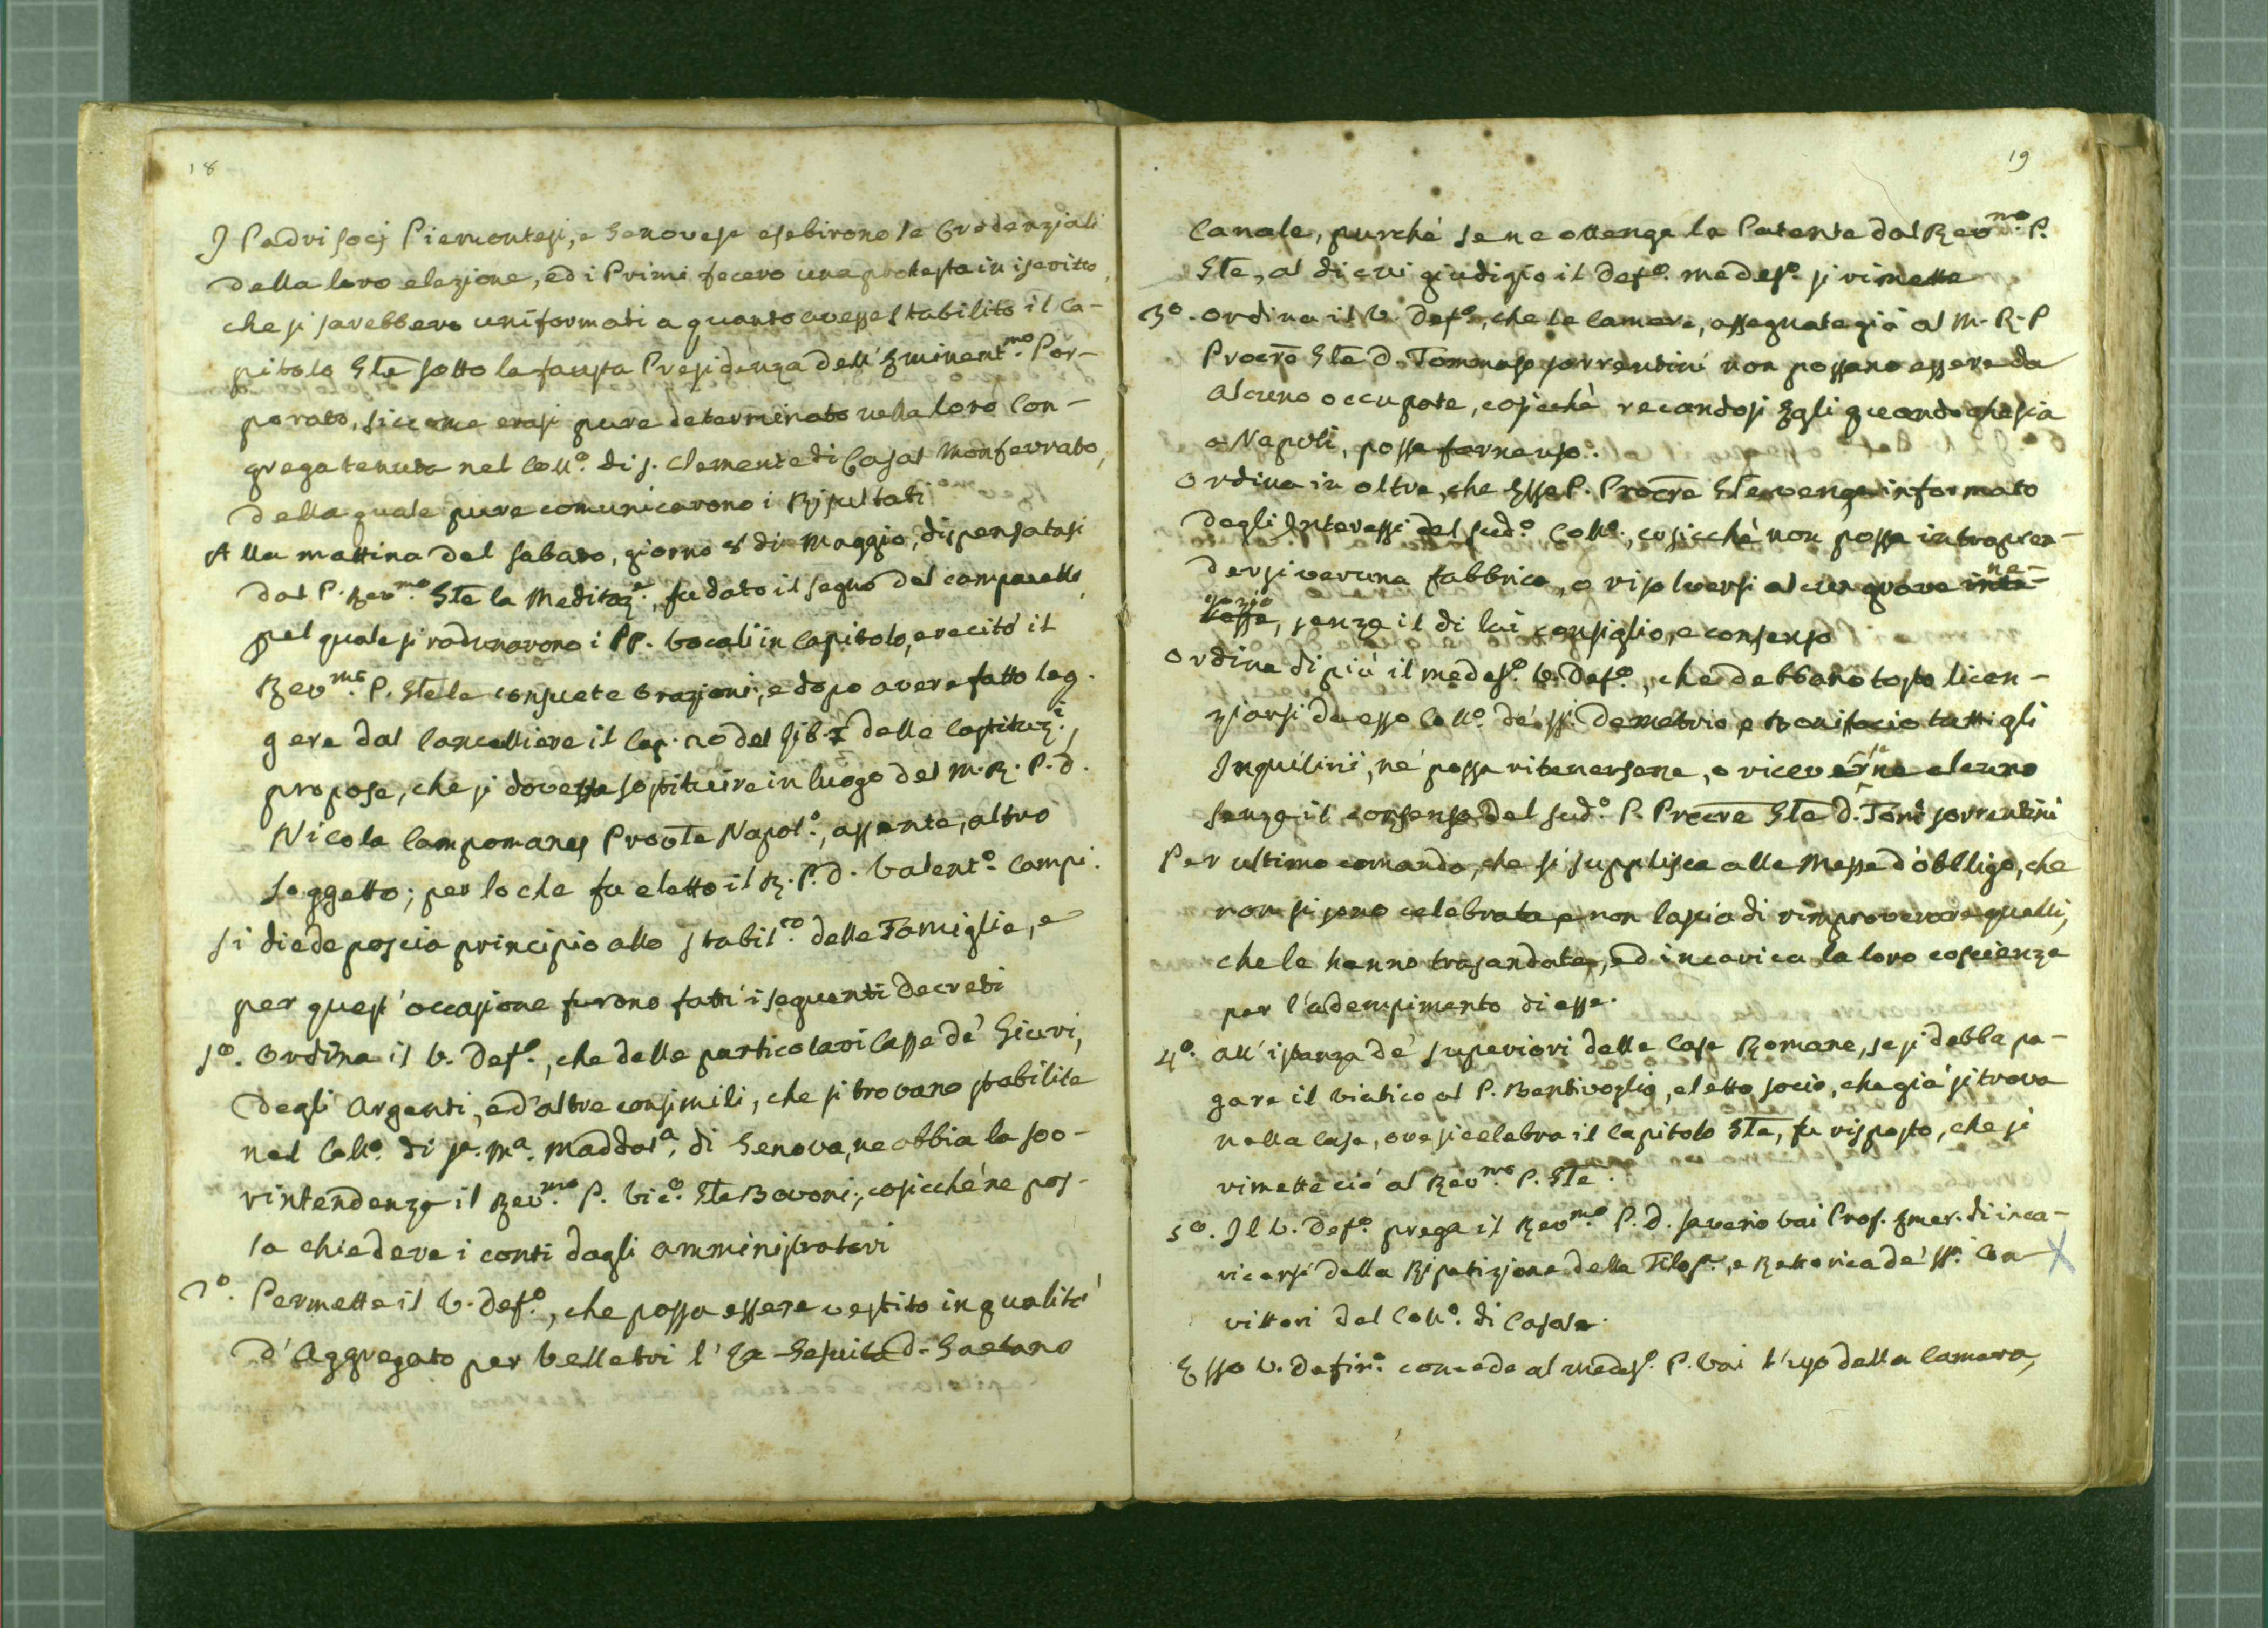 18
I Padri Socj Piemontesi, e Genovese esebirono le Credenziali
della loro elezione, ed i Primi fecero una protesta in iscritto,
che si sarebbero uniformati a quanto avesse stabilito il Ca-
pitolo Gl͞e sotto la fausta Presidenza dell'Eminent.mo Por-
porato, siccome erasi pure determinato nella loro Con-
grega tenuta nel Coll.o di S. Clemente di Casal Monferrato,
della quale pure comunicarono i Risultati
Alla mattina del Sabato, giorno 8 di Maggio, dispensatasi
dal P. Rev.mo Gl͞e la Meditaz.e, fu dato il segno del campanello,
pel quale si radunarono i PP. Vocali in Capitolo, e recitò il
Rev.mo P. Gl͞e le consuete Orazioni, e dopo avere fatto leg-
gere dal Cancelliere il Cap. 20 del Lib. I delle Costituz.i,
propose, che si dovesse sostituire in luogo del M. R. P. D.
Nicola Campomanes Prov͞le Napol.o, assente, altro
Soggetto; per lo che fu eletto il R. P. D. Valent.o Campi.
Si diede poscia principio allo stabil.to delle Famiglie, e
per quest'occasione furono fatti i seguenti decreti
1o. Ordina il V. Def.o, che delle particolari Casse de' Giuri,
degli Argenti, ed'altre consimili, che si trovano stabilite
nel Coll.o di S.a M.a Maddal.a di Genova, ne abbia la soo-
vintendenza il Rev.mo P. Vic.o Gl͞e Bovoni, cosicchè ne pos-
sa chiedere i conti dagli amministratori
2o. Permette il V. Def.o, che possa essere vestito in qualità
d'Aggregato per Velletri l'Ex-Gesuita D. Gaetano
19
Canale, purchè se ne ottenga la Patente dal Rev.mo P.
Gl͞e, al di cui giudizio il Def.o medes.o si rimette
3o. Ordina il V. Def.o, che le Camere, assegnate già al M. R. P
Proc͞re Gl͞e D. Tommaso Sorrentini non possano essere da
alcuno occupate, cosicchè recandosi Egli quando che sia
a Napoli, possa farne uso.
Ordina in oltre, che Esso P. Proc͞re Gl͞e venga informato
degli Interessi del sud.o Coll.o, cosicchè non possa intrapren-
dersi veruna fabbrica, o risolversi alcun grave inte- ne-
resse gozio, senza il di lui consiglio, e consenso
Ordina di più il medes.o V. Def.o, che debbano tosto licen-
ziarsi da esso Coll.o de' SS. Demetrio e Bonifacio tutti gli
Inquilini, nè possa ritenersene, o riceversene alcuno
senza il consenso del sud.o P. Proc͞re Gl͞e D. Tom.o Sorrentini
Per ultimo comanda, che si supplisca alle Messe d'obbligo, che
non si sono celebrate, e non lascia di rimproverare quelli,
che le hanno trasandate, ed incarica la loro coscienza
per l'adempimento di esse.
4o. All'istanza de' Superiori delle Case Romane, se si debba pa-
gare il viatico al P. Bentivoglio, eletto Socio, che già si trova
nella Casa, ove si celebra il Capitolo Gl͞e, fu risposto, che si
rimette ciò al Rev.mo P. Gl͞e.
5o. Il V. Def.o prega il Rev.mo P. D. Saverio Vai Prof. Emer. di inca-
ricarsi della Ripetizione della Filos.a, e Rettorica de' SS.i Con- X
vittori del Coll.o di Casale.
Esso V. Defin.o concede al medes.o P. Vai l'uso della Camera,